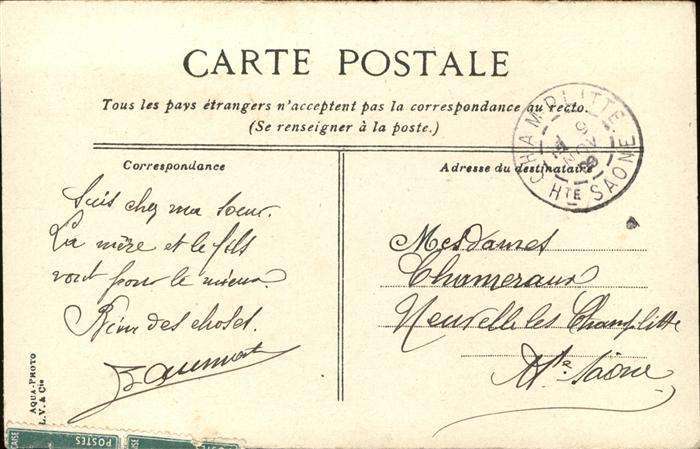 CARTE POSTALE
Tous les pays étrangers n'acceptent pas la correspondance au recto.
(Se renseigner à la poste.)
CHAMPLITTE
Hte SAONE
Correspondance
Suis chez ma soeur.
La mère et le fils
vont pour le mieux
Bien des choses.
Adresse du destinataire
Mesdames
Chameraux
Neuvelle les Champlitte
Hte Saône
AQUA-PHOTO
L. V. & Cie
POSTES
POSTES